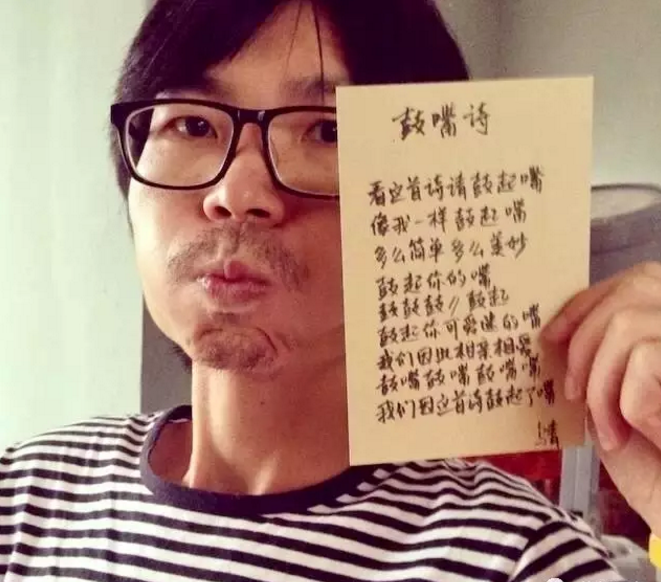 鼓嘴诗
看这首诗请鼓起嘴
像我一样鼓起嘴
多么简单多么美妙
鼓起你的嘴
鼓鼓鼓//鼓起
鼓起你可爱迷的嘴
我们因此相亲相爱
鼓嘴鼓嘴鼓嘴嘴
我们因这首诗鼓起了嘴
乌青